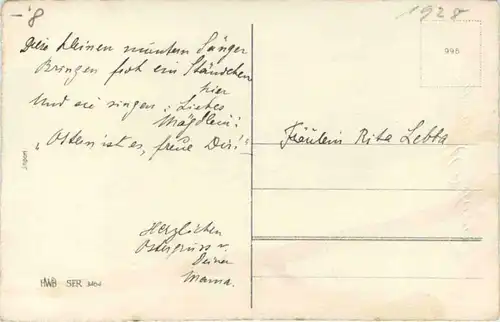 -'8
1928
995
Diese kleinen muntern Sänger
Bringen fort ein Ständchen
hier
Und sie singen: Liebes
Mägdlein:
„Ostern ist es, freue Dir!"
Fräulein Rita Lebta
Import
Herzlichen
Ostergruss v.
Deiner
Mama.
HWB SER